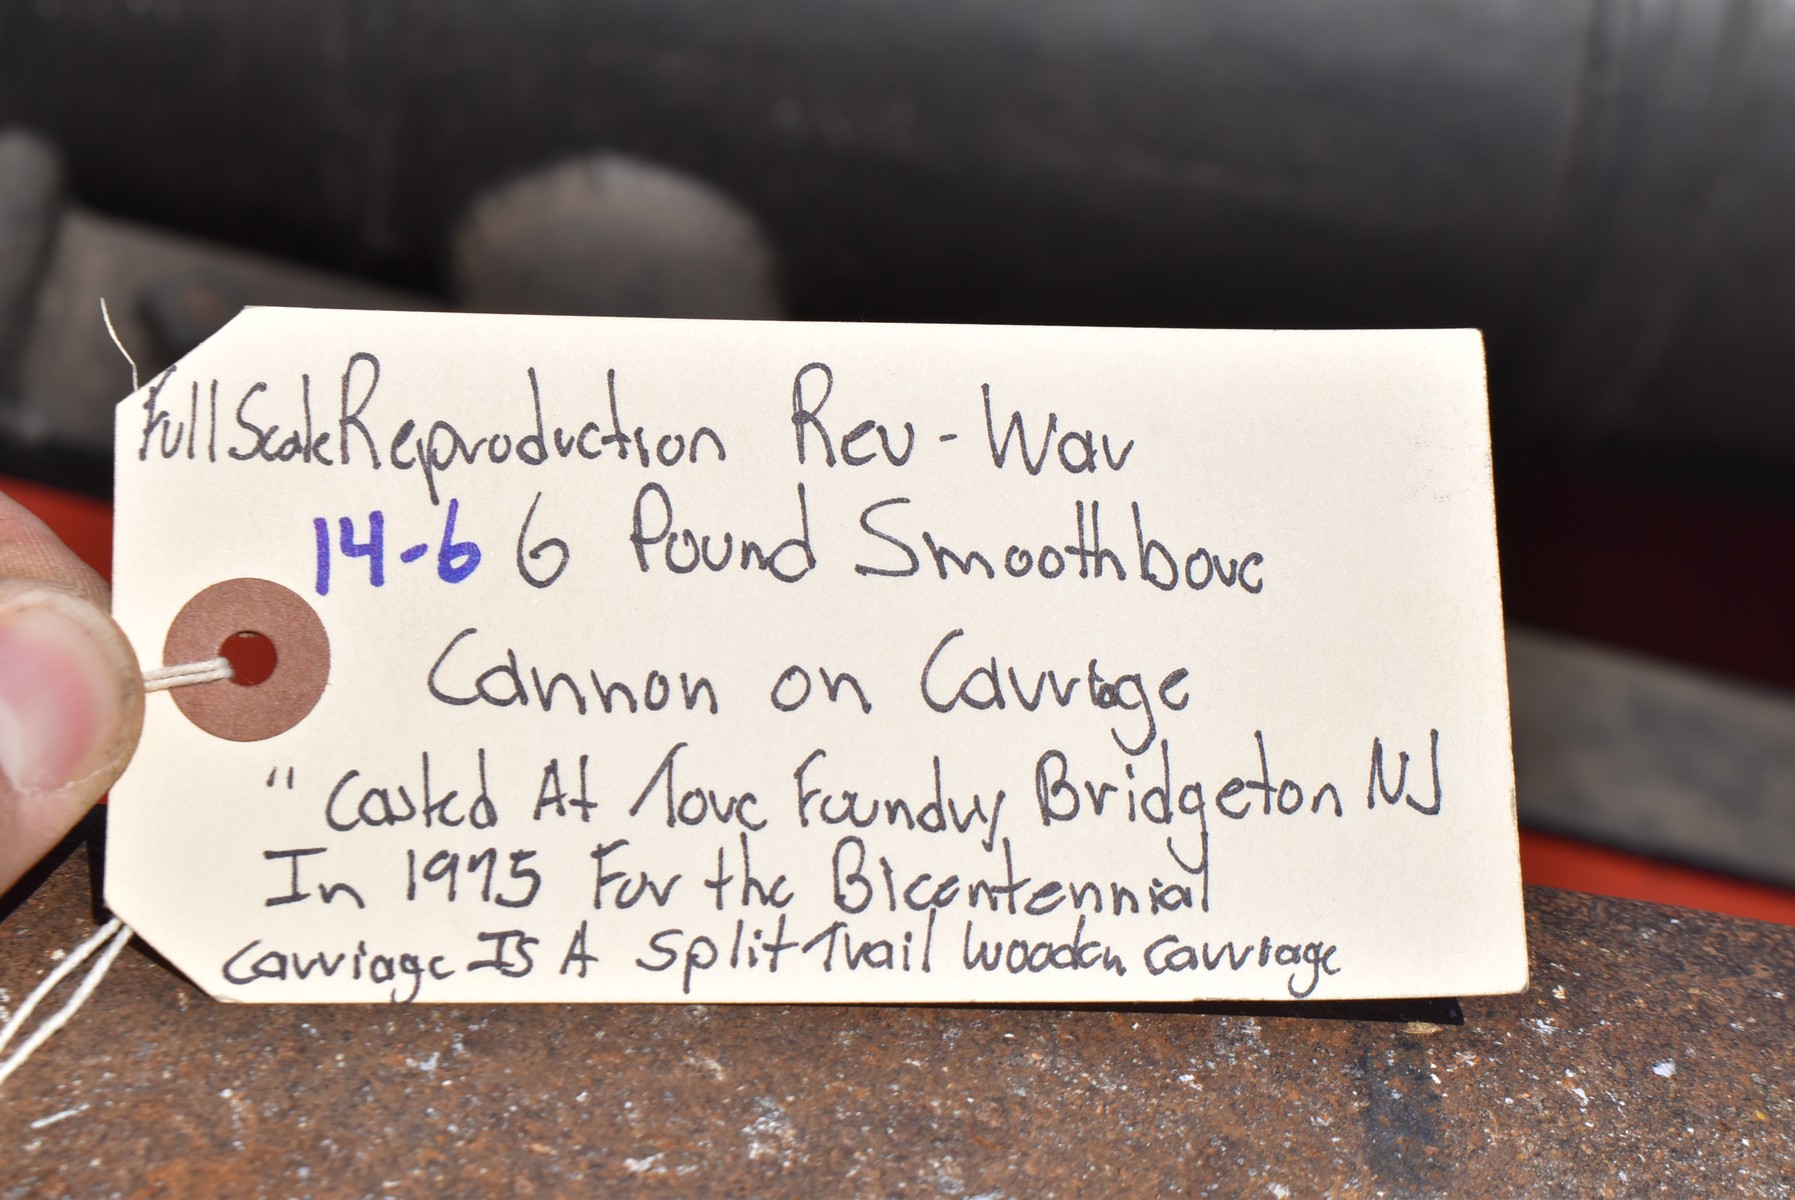 Full Scale Reproduction Rev-War
14-6 6 Pound Smoothbore
Cannon on Carriage
" Casted At Tove Foundry Bridgeton NJ
In 1975 For the Bicentennial
Carriage IS A Split Trail Wooden Carriage